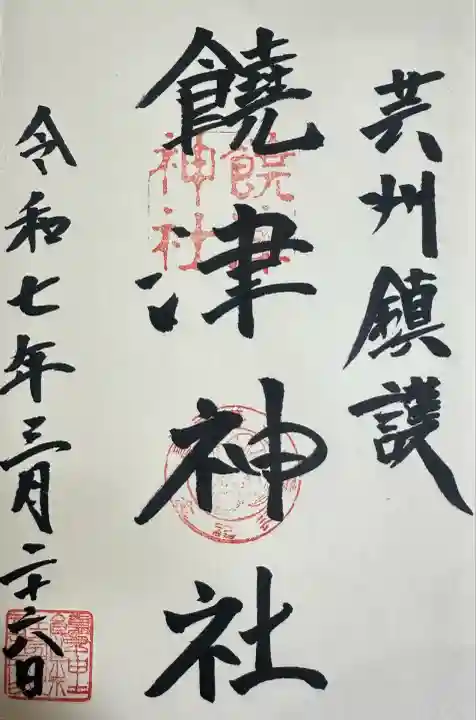 芸州鎮護
饒津神社
饒津神社
令和七年三月二十六日